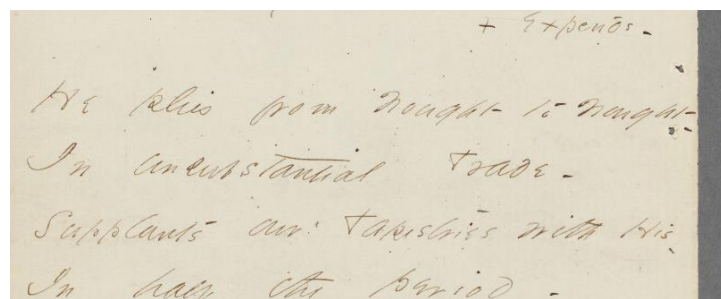 + Expends -
He plies from nought to nought -
In unsubstantial Trade -
Supplants our Tapestries with His
In half the period -